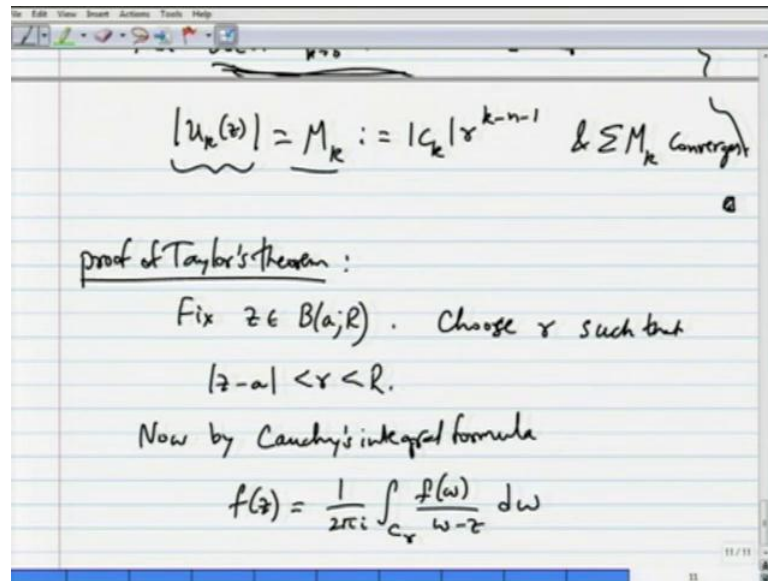 File Edit View Insert Actions Tools Help
|u_k(z)| = M_k := |c_k| r^{k-n-1} & Σ M_k Convergent
proof of Taylor's theorem :
Fix z ∈ B(a;R) . Choose r such that
|z-a| < r < R.
Now by Cauchy's integral formula
f(z) = \frac{1}{2πi} ∫_{C_r} \frac{f(ω)}{ω-z} dω
11/11
11